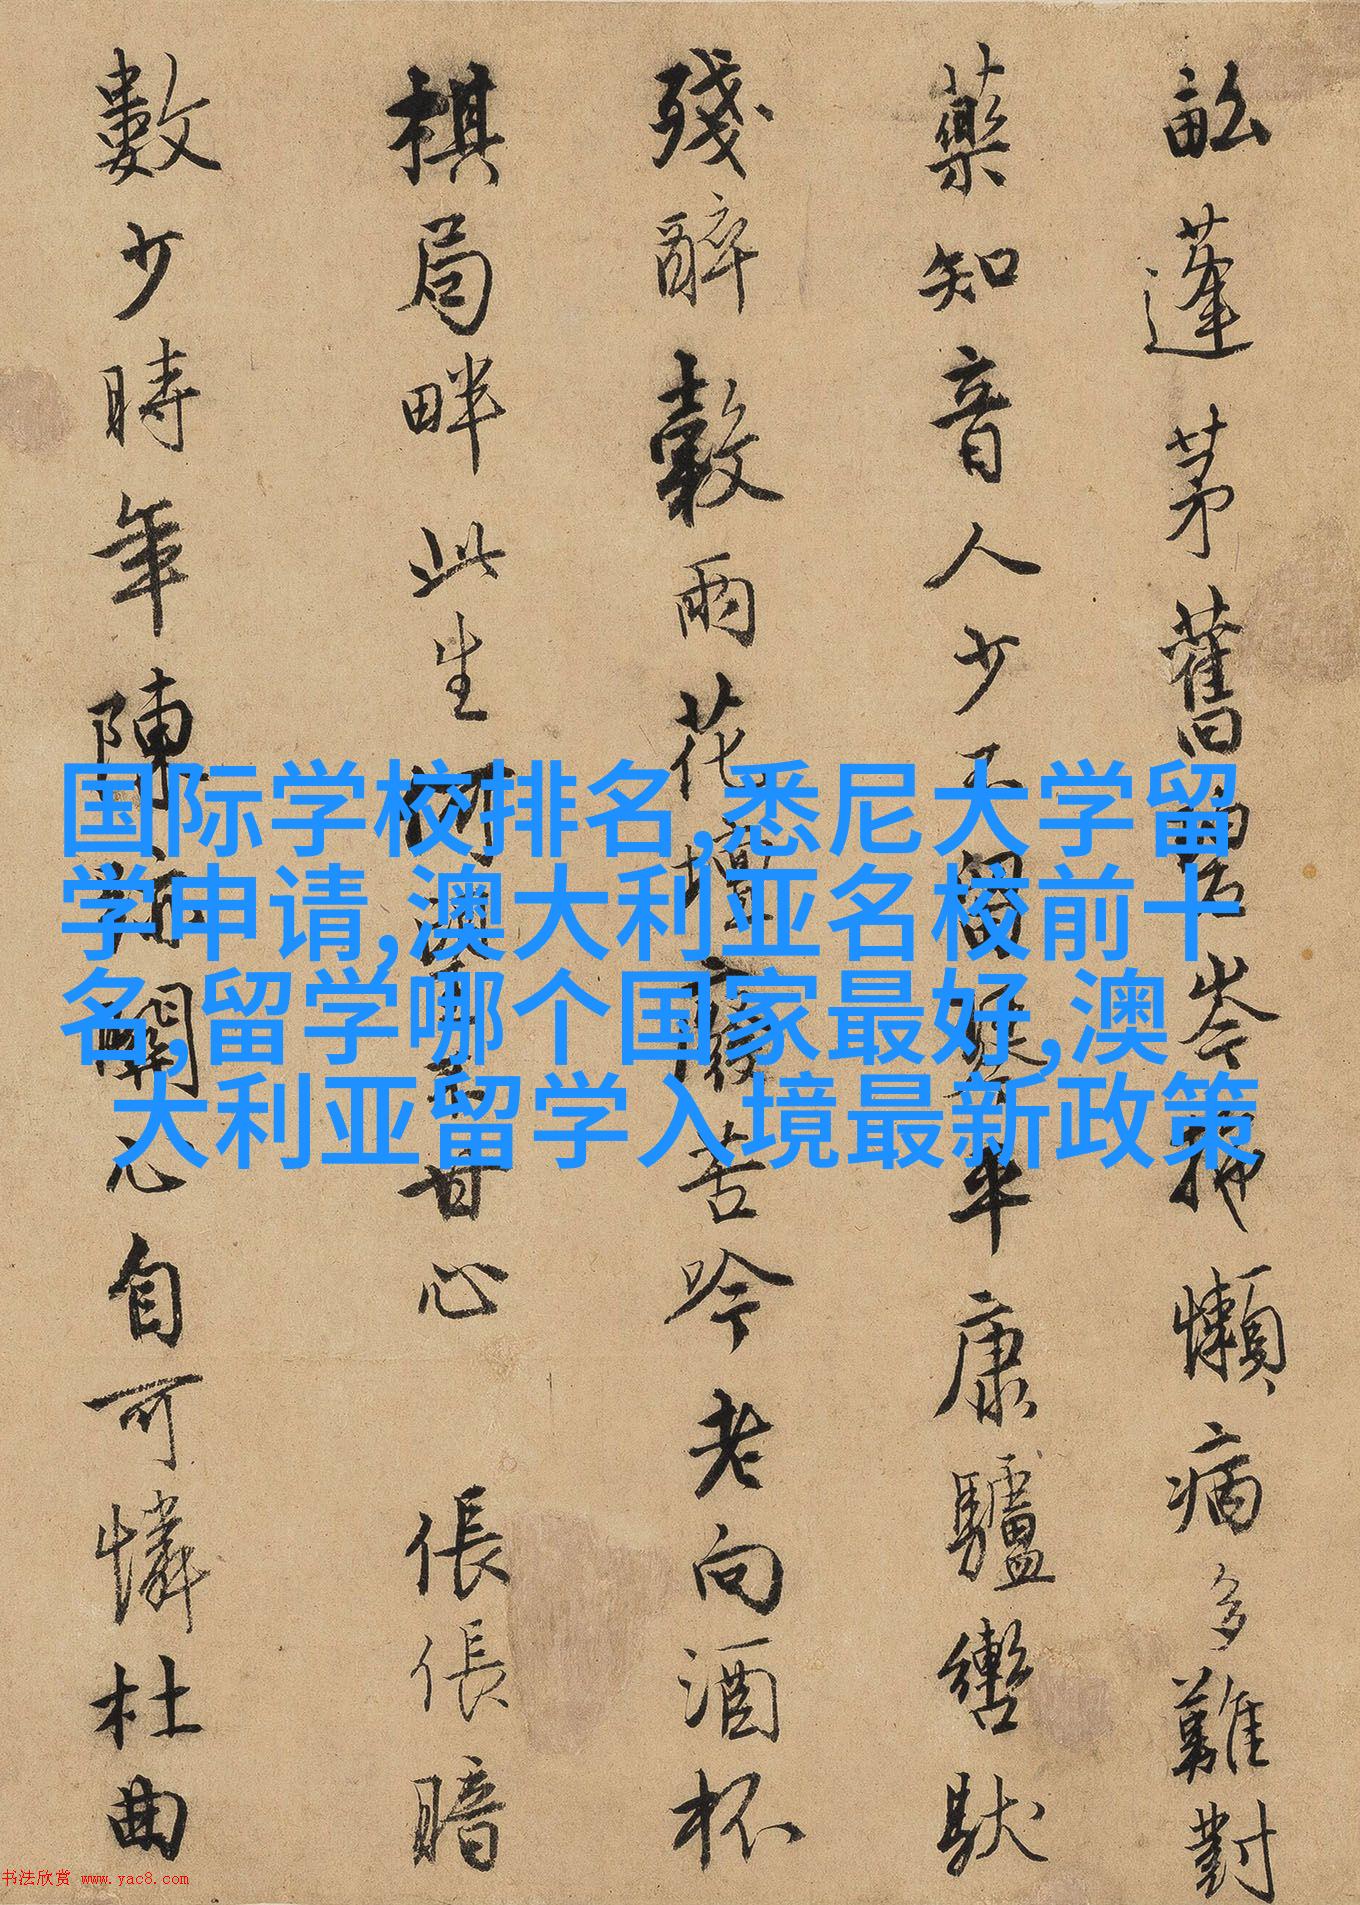 国际学校排名,悉尼大学留
学申请,澳大利亚名校前十
名,留学哪个国家最好,澳
大利亚留学入境最新政策
畝蓬茅舊岑懶病多難對
藥知音人少不留康驢轡馱
殘醉穀雨花壇廢苦吟老向酒杯
棋局畔此生何甘心 倀倀暗
數少時年陳關心自可憐杜曲
书法欣赏 www.yac8.com